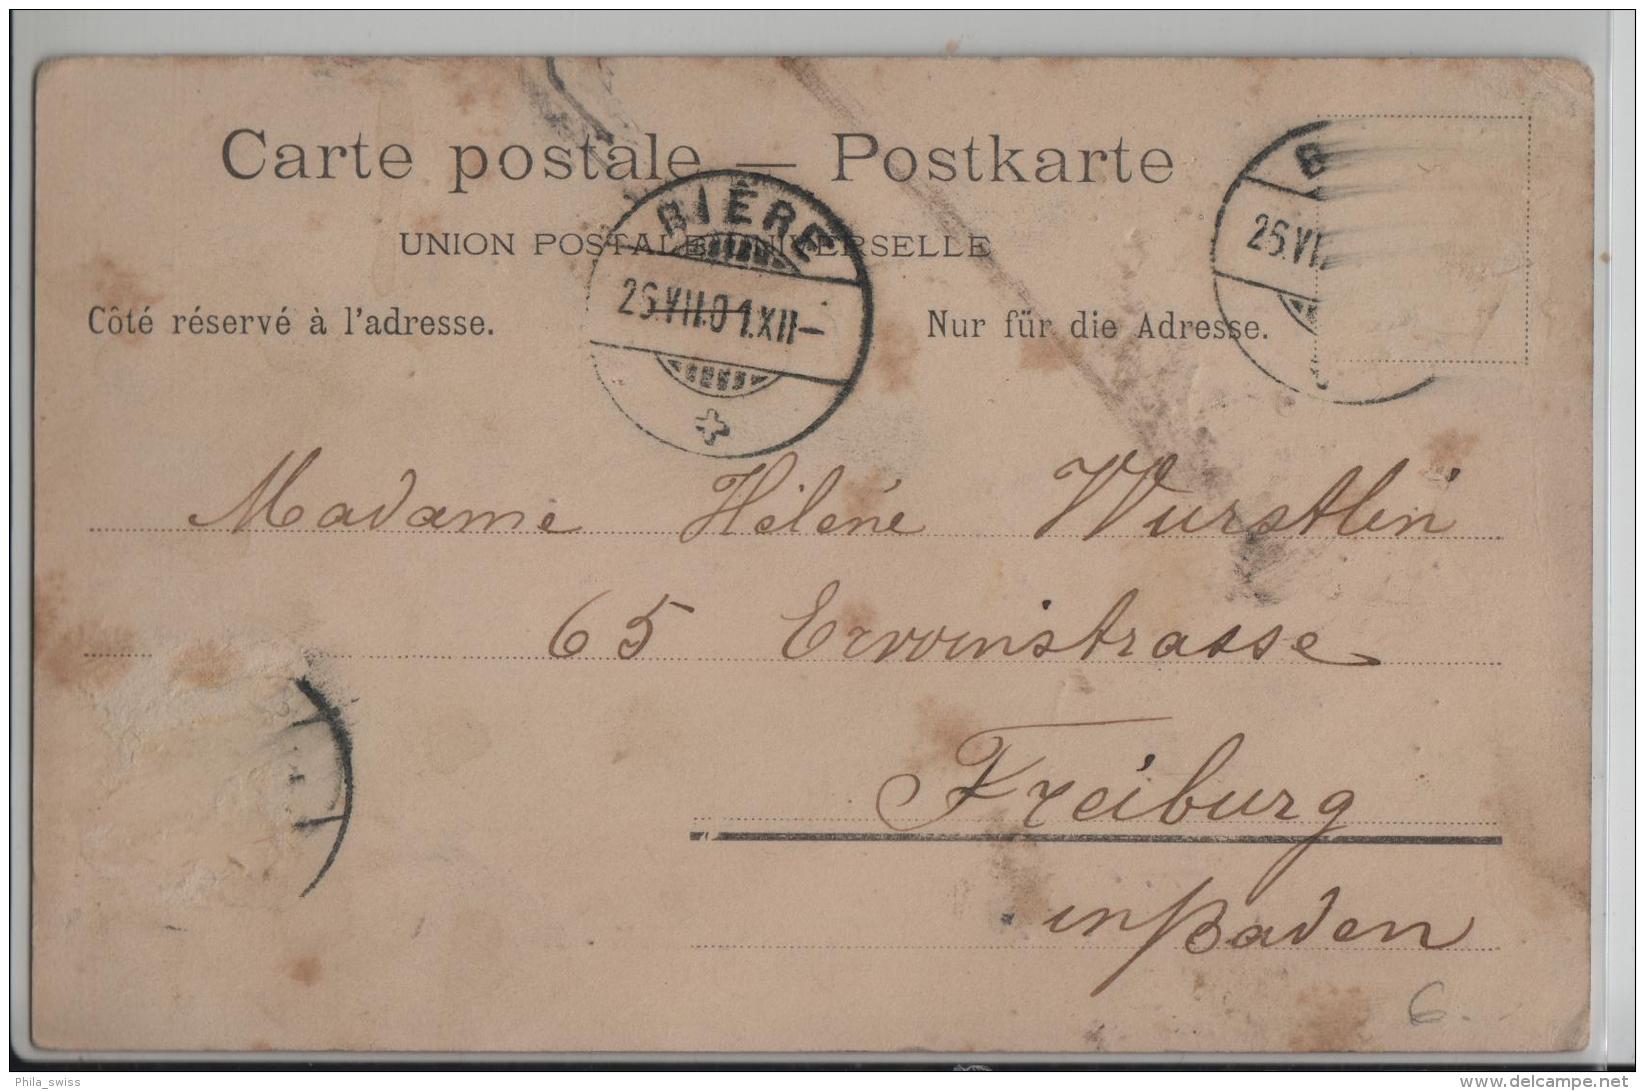 Carte postale — Postkarte
UNION POSTALE UNIVERSELLE
BIÈRE
26.VII.01.XII—
B
26.VI
Côté réservé à l'adresse.
Nur für die Adresse.
Madame Hélène Wurstlin
65 Erwinstrasse
Freiburg
in Baden
6.
Phila_swiss
www.delcampe.net